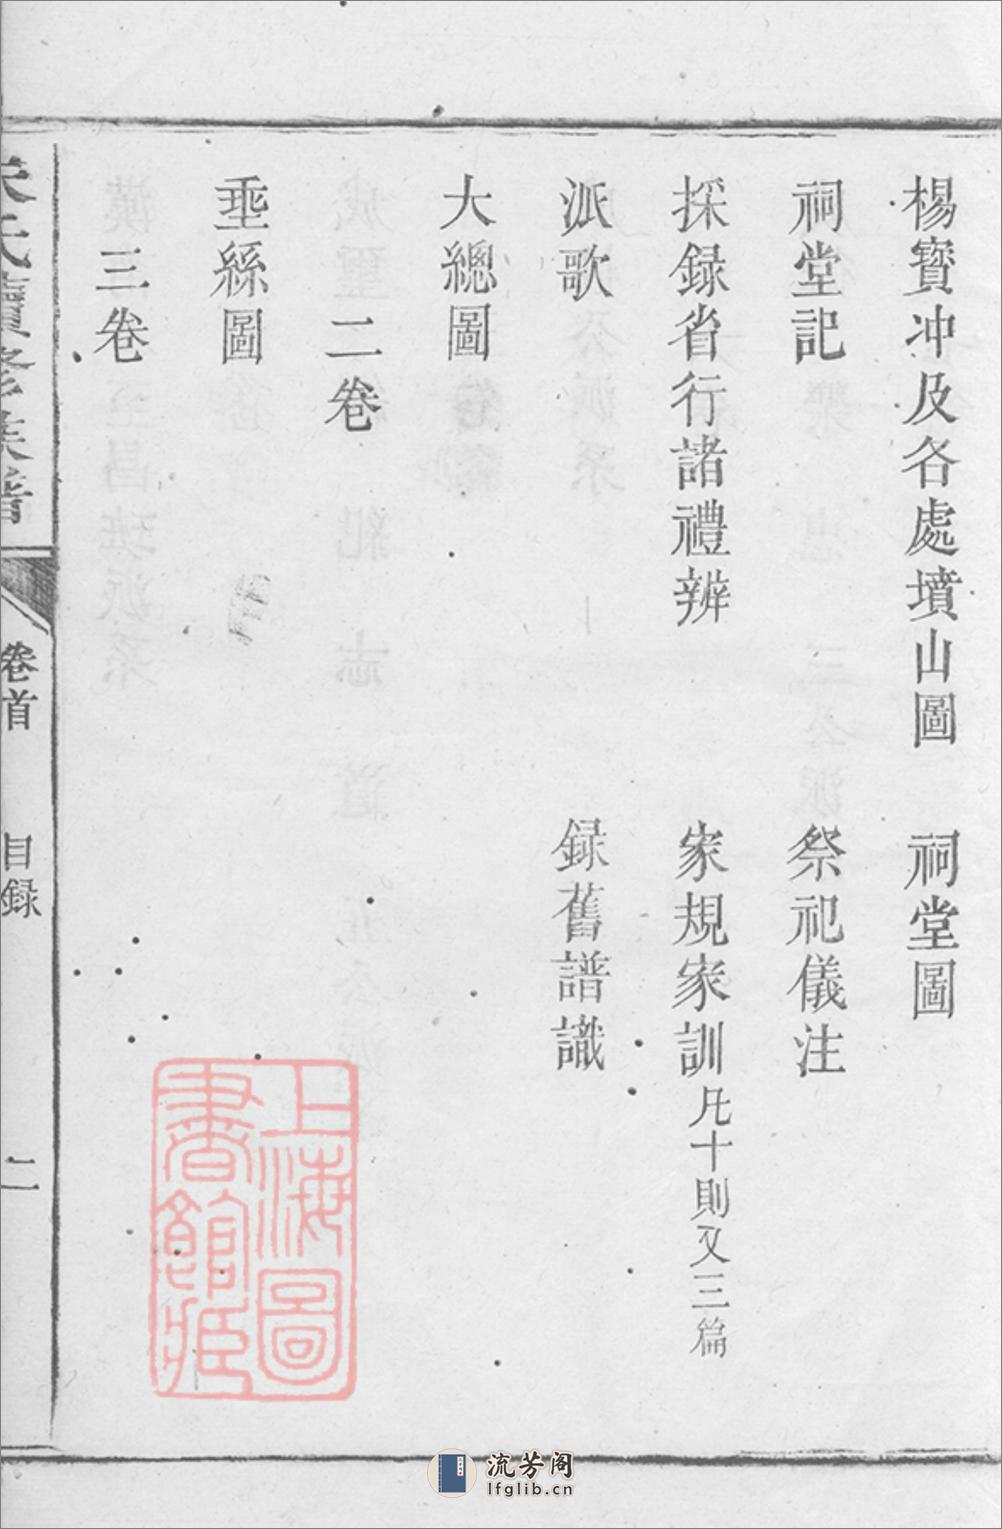 楊寳冲及各處墳山圖　祠堂圖
祠堂記　祭祀儀注
採録省行諸禮辨　家規家訓 凡十則又三篇
派歌　録舊譜識
大總圖
二卷
埀絲圖
三卷
氏續修族譜　卷首　目録　二
上海圖書館藏
流芳阁
lfglib.cn